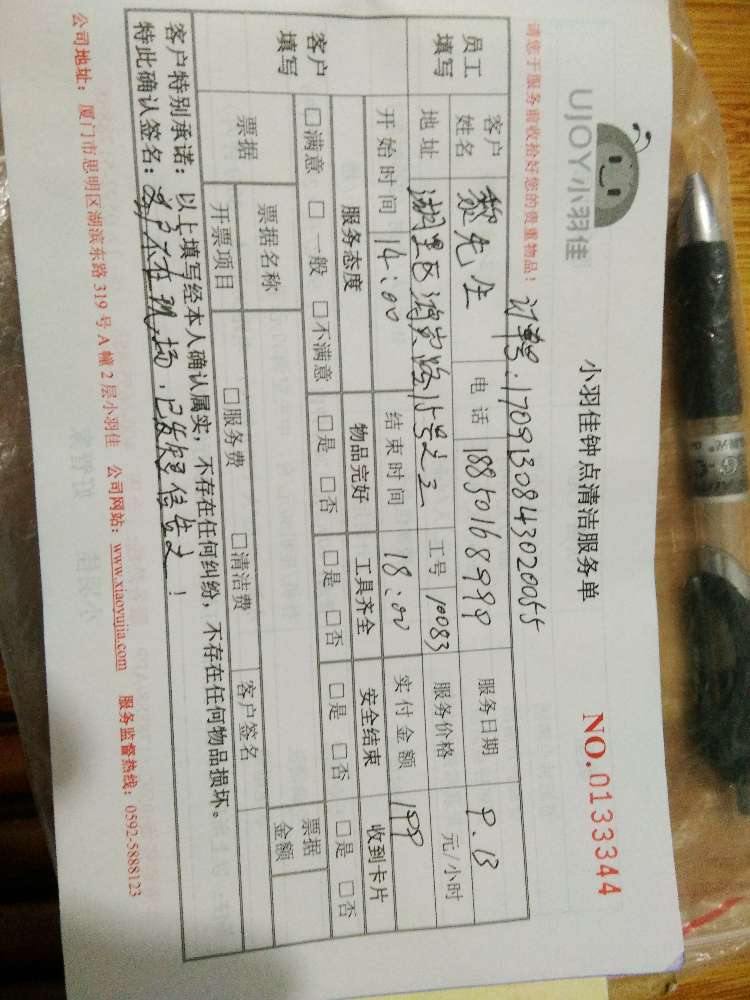 UJOY小羽佳
小羽佳钟点清洁服务单
NO.0133344
请您于服务前收拾好您的贵重物品!
订单号:1709130843020055
员工填写
客户姓名 黎先生 电话 18850168999 服务日期 9.13
地址 湖里区 工号 10083 服务价格 元/小时
开始时间 14:00 结束时间 18:00 实付金额 199
客户填写
服务态度 物品完好 工具齐全 安全结束 收到卡片
□满意 □一般 □不满意 □是 □否 □是 □否 □是 □否 □是 □否
票据 票据名称 票据金额
开票项目 □服务费 □清洁费 客户签名
客户特别承诺:以上填写经本人确认属实,不存在任何纠纷,不存在任何物品损坏。
特此确认签名:客户不在现场,已发短信告之!
公司地址:厦门市思明区湖滨东路319号A幢2层小羽佳 公司网站:www.xiaoyujia.com 服务监督热线:0592-5888123